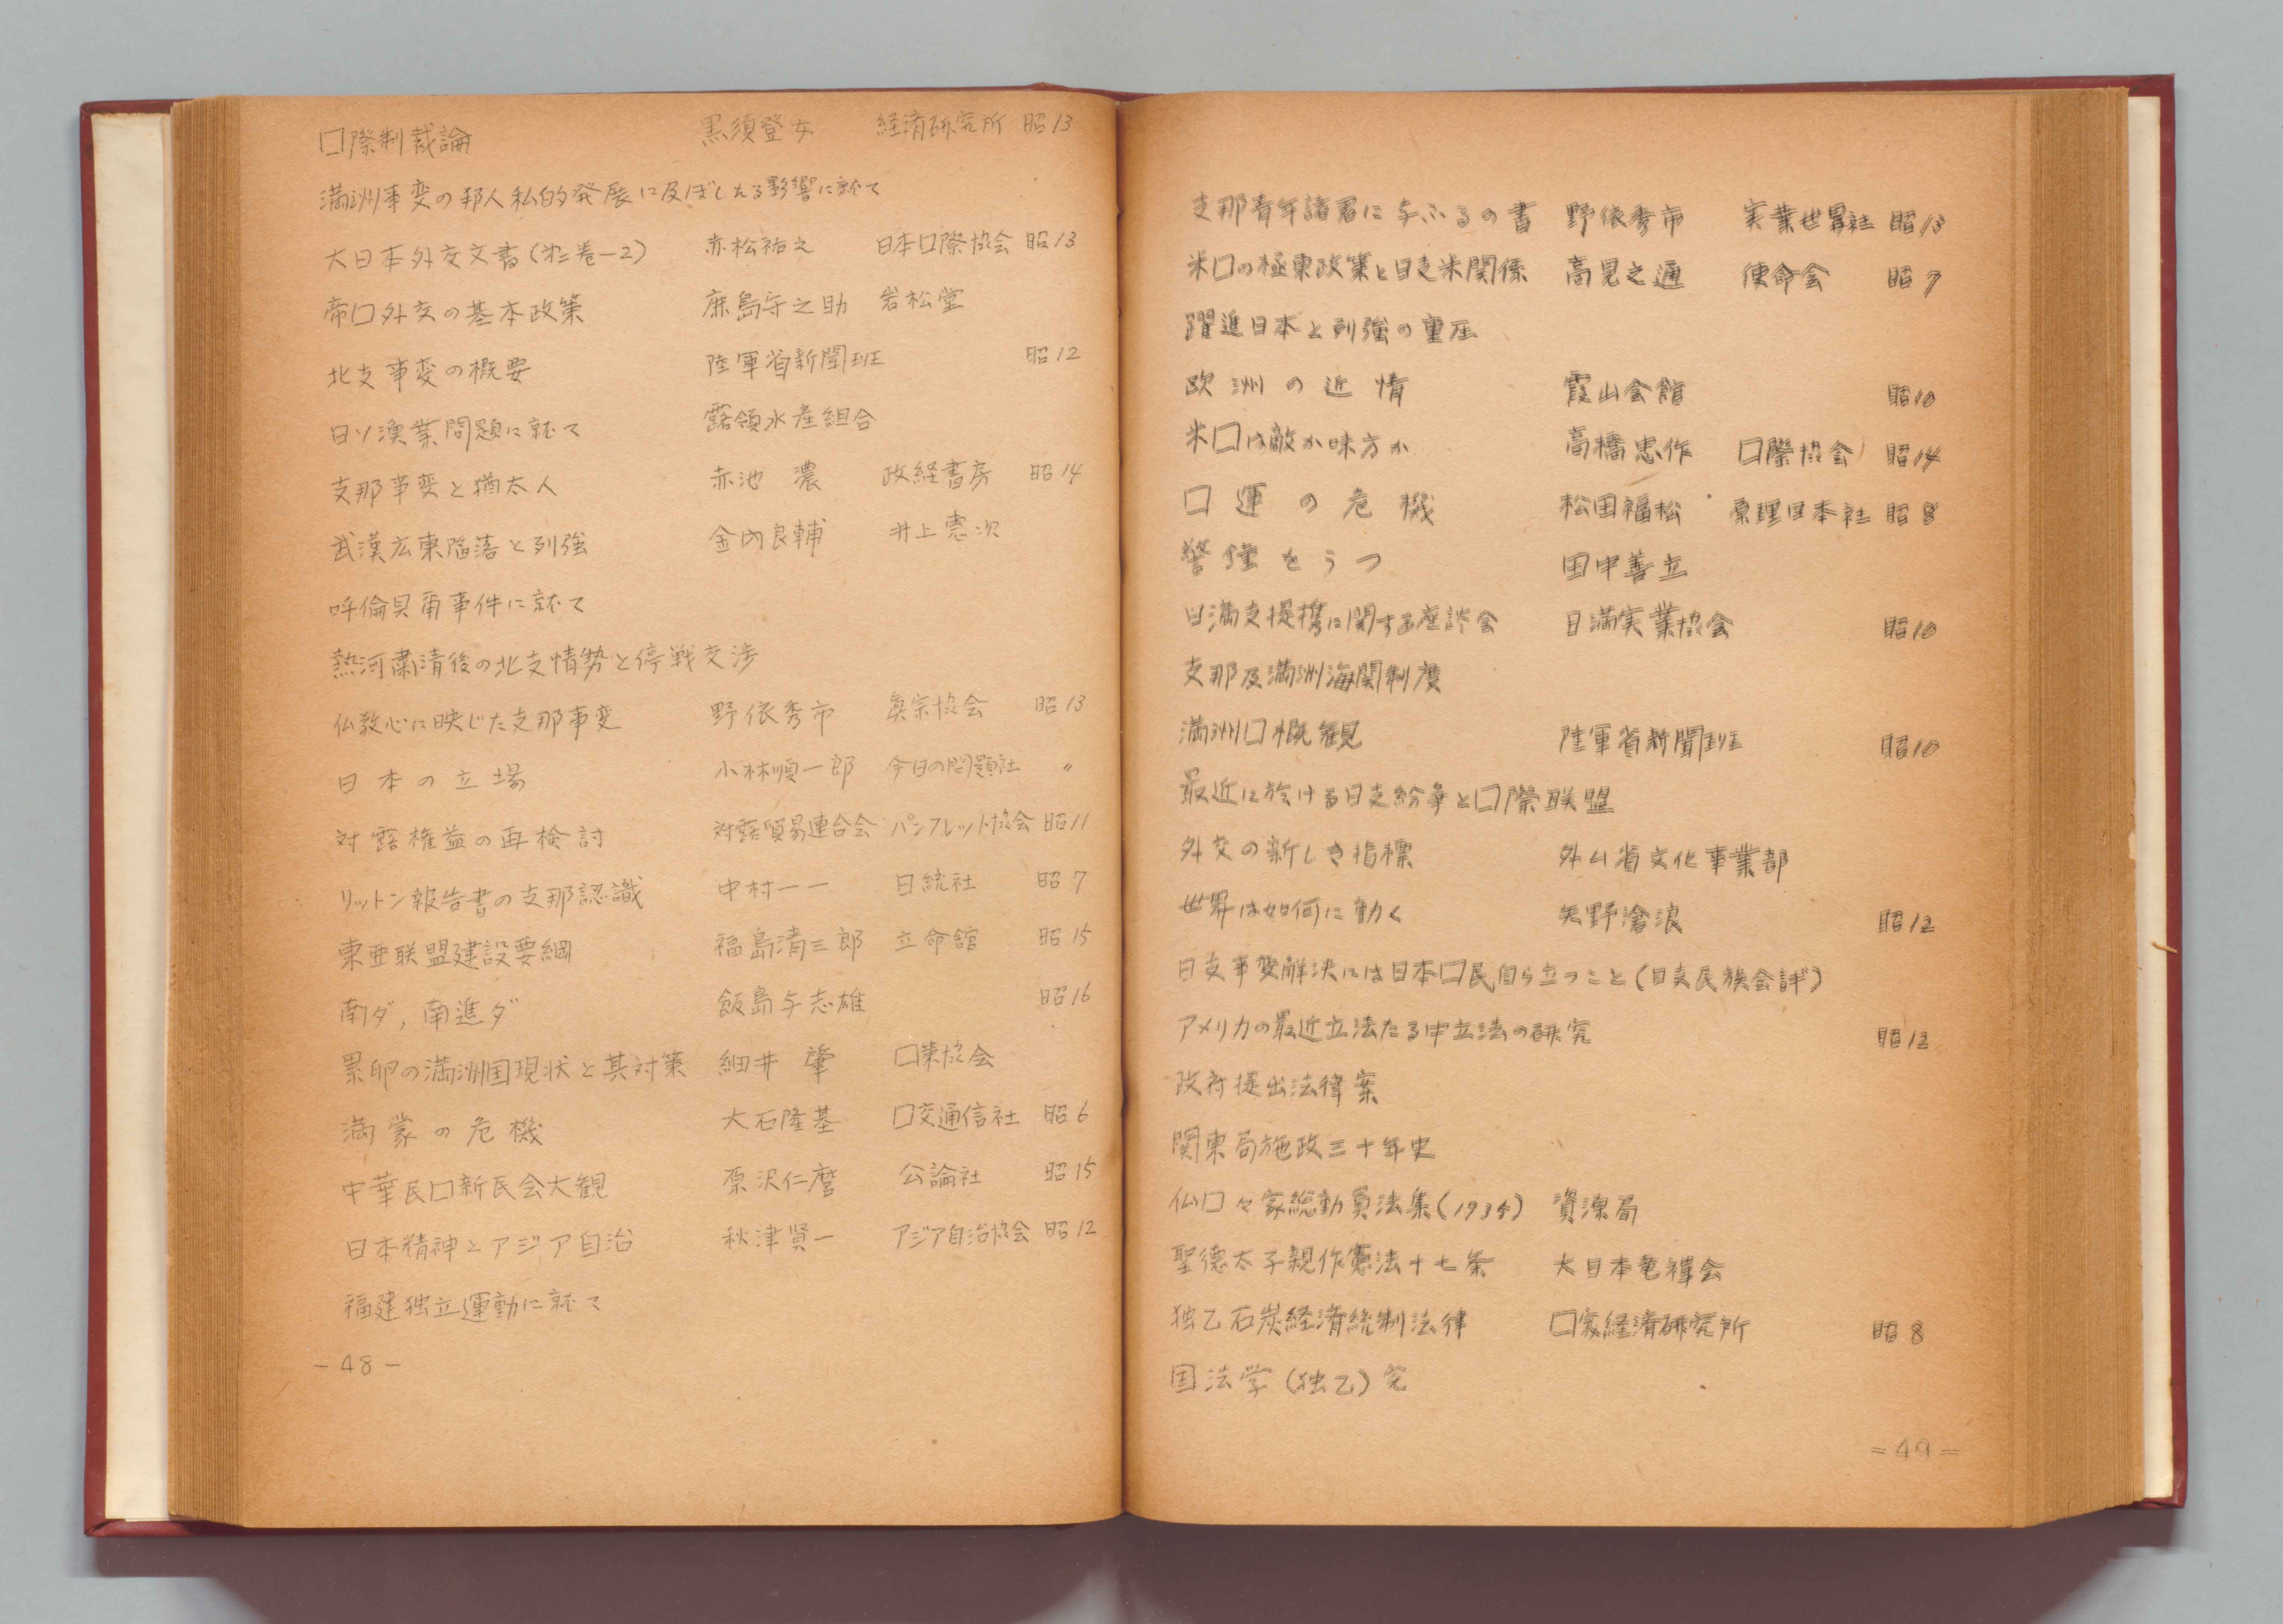 口際制裁論 黒須登女 経済研究所 昭13
満洲事変の邦人私的発展に及ぼしたる影響に就て
大日本外交文書(オ二巻-2) 赤松祐之 日本口際協会 昭13
帝口外交の基本政策 鹿島守之助 岩松堂
北支事変の概要 陸軍省新聞班 昭12
日ソ漁業問題に就て 露領水産組合
支那事変と猶太人 赤池 濃 政経書房 昭14
武漢広東陥落と列強 金内良輔 井上憲次
呼倫貝甫事件に就て
熱河粛清後の北支情勢と停戦交渉
仏教心に映じた支那事変 野依秀市 眞宗協会 昭13
日本の立場 小林順一郎 今日の問題社 〃
対露権益の再検討 対露貿易連合会 パンフレット協会 昭11
リットン報告書の支那認識 中村一一 日統社 昭7
東亜联盟建設要綱 福島清三郎 立命館 昭15
南ダ,南進ダ 飯島与志雄 昭16
累卵の満洲国現状と其対策 細井 肇 口策協会
満蒙の危機 大石隆基 口交通信社 昭6
中華民口新民会大観 原沢仁麿 公論社 昭15
日本精神とアジア自治 秋津賢一 アジア自治協会 昭12
福建独立運動に就て
-48-
支那青年諸君に与ふるの書 野依秀市 実業世界社 昭13
米口の極東政策と日支米関係 高見之通 使命会 昭7
躍進日本と列強の重圧
欧洲の近情 霞山会館 昭10
米口は敵か味方か 高橋忠作 口際協会 昭14
口運の危機 松田福松 原理日本社 昭8
警鐘をうつ 田中善立
日満支提携に関する座談会 日満実業協会 昭10
支那及満洲海関制度
満洲口概観 陸軍省新聞班 昭10
最近に於ける日支紛争と口際联盟
外交の新しき指標 外ム省文化事業部
世界は如何に動く 矢野滄浪 昭12
日支事変解決には日本口民自ら立つこと(日支民族会議)
アメリカの最近立法たる中立法の研究 昭12
政府提出法律案
関東局施政三十年史
仏口々家総動員法集(1934) 資源局
聖徳太子親作憲法十七条 大日本会
独乙石炭経済統制法律 口家経済研究所 昭8
国法学(独乙)完
-49-